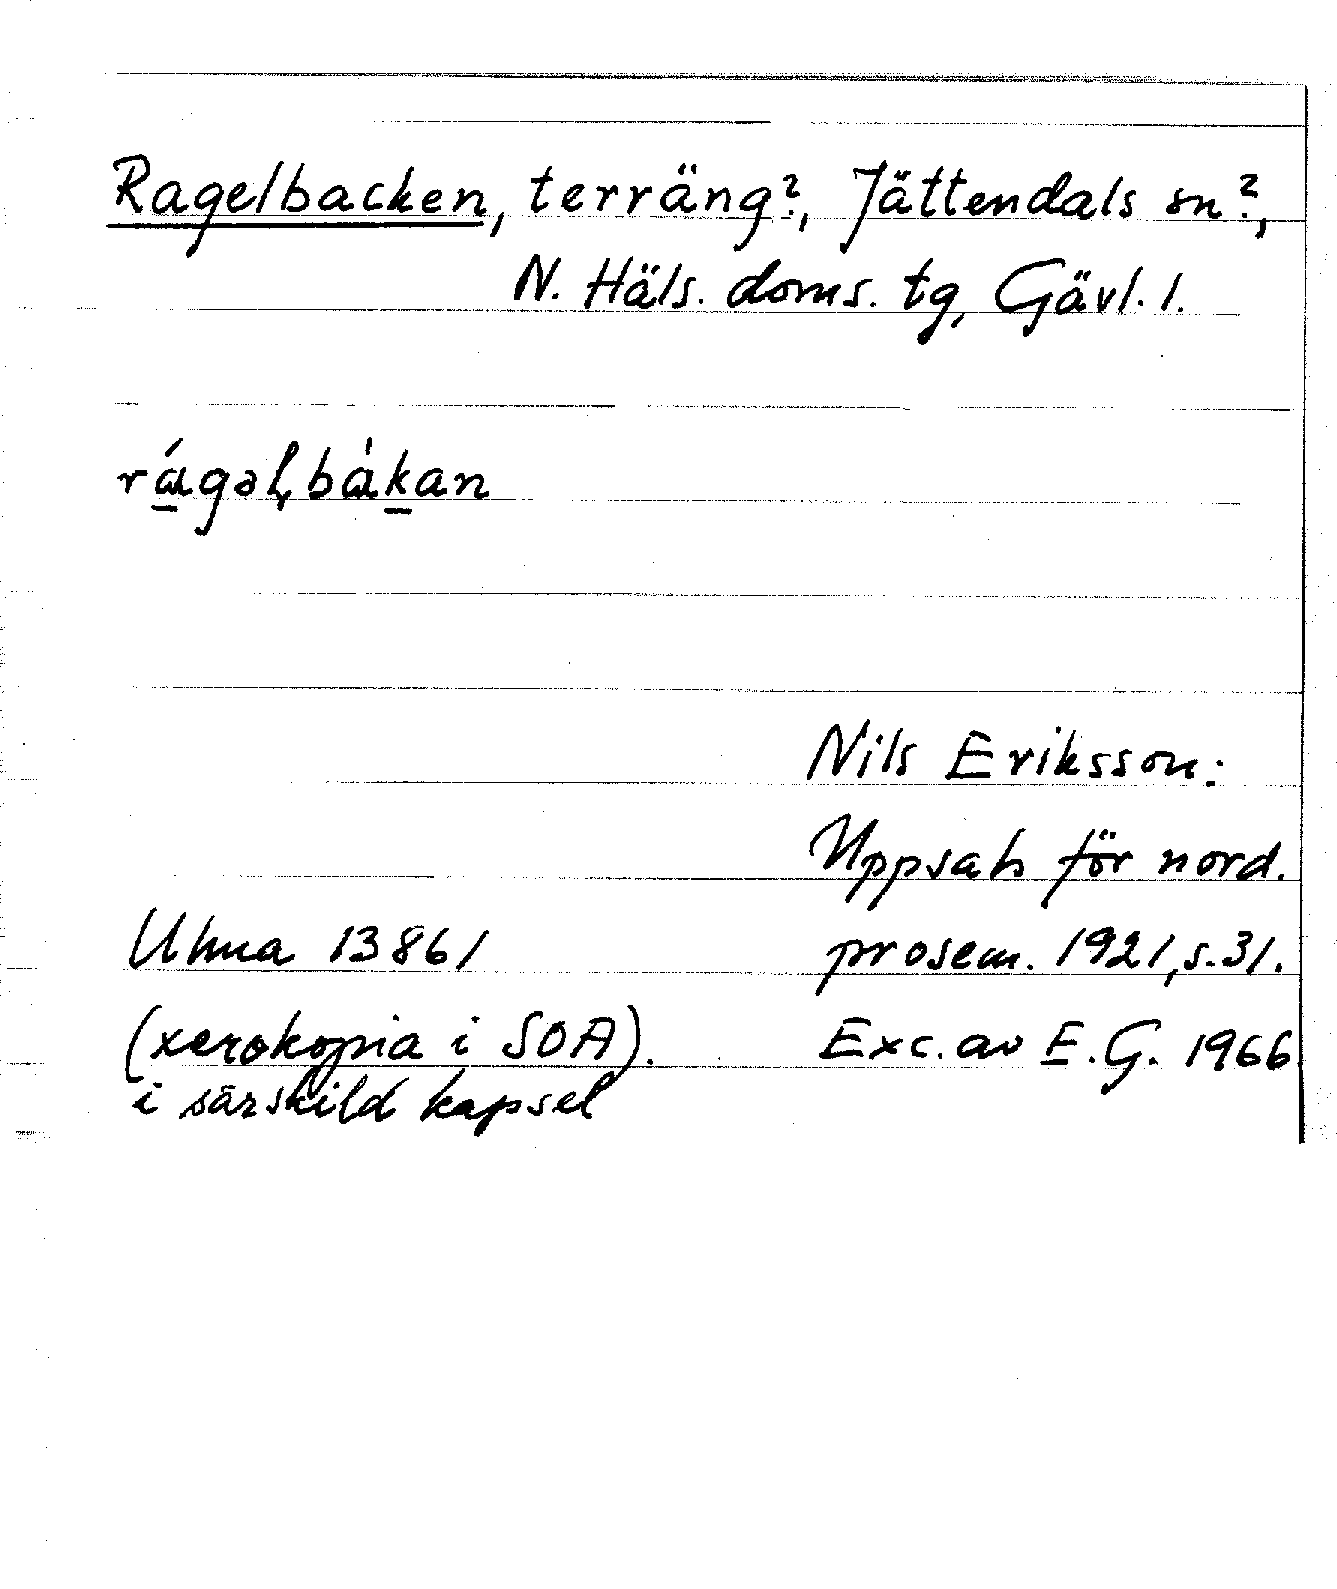 Ragelbacken, terräng?, Jättendals sn?,
N. Häls. doms. tg, Gävl. l.
rágəl,bàkan
Nils Eriksson:
Uppsats för nord.
Ulma 13861 prosem. 1921, s. 31.
(xerokopia i SOA). Exc. av E.G. 1966
i särskild kapsel